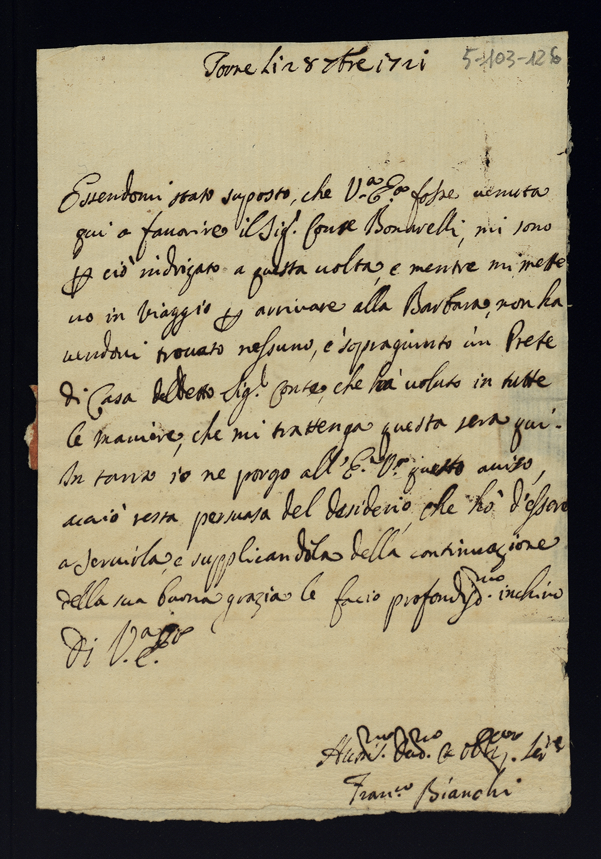 li 28 7bre 1721
5-103-126
Essendomi stato suposto, che V.a E.a fosse venuta
qui a favorire il Sig.r Conte Bonarelli, mi sono
ciò indrizato a questa volta, e mentre mi mette
vo in viaggio arrivare alla Barbara, non ha
vendoni trovato nessuno, è sopragiunto un Prete
di Casa deldetto Sig.r Conte, che ha voluto in tutte
le maniere, che mi trattenga questa sera qui.
In tanto io ne porgo all'E.a V.a questo aviso,
acciò resta persuasa del desiderio, che hò d'essere
a servirla, e supplicandola della continuazione
della sua buona grazia le facio profondiss.mo inchino
Di V.a E.
Hum.mo Dev.mo e Obblig. Ser.re
Fran.co Bianchi